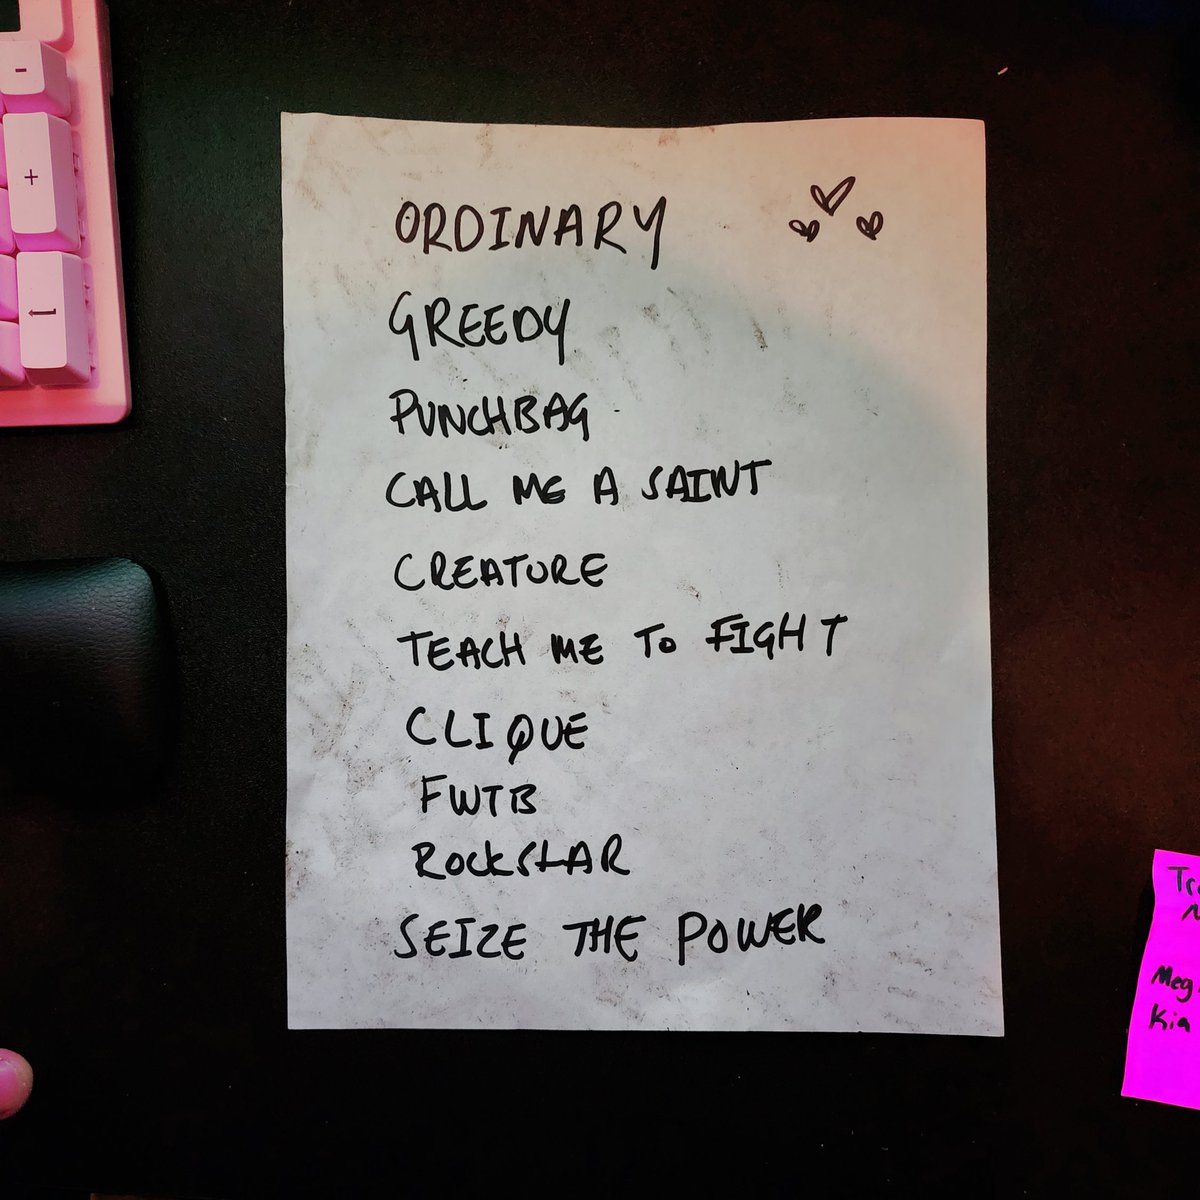 ORDINARY
GREEDY
PUNCHBAG
CALL ME A SAINT
CREATURE
TEACH ME TO FIGHT
CLIQUE
FWTB
ROCKSTAR
SEIZE THE POWER
Meg
Kia
-
+